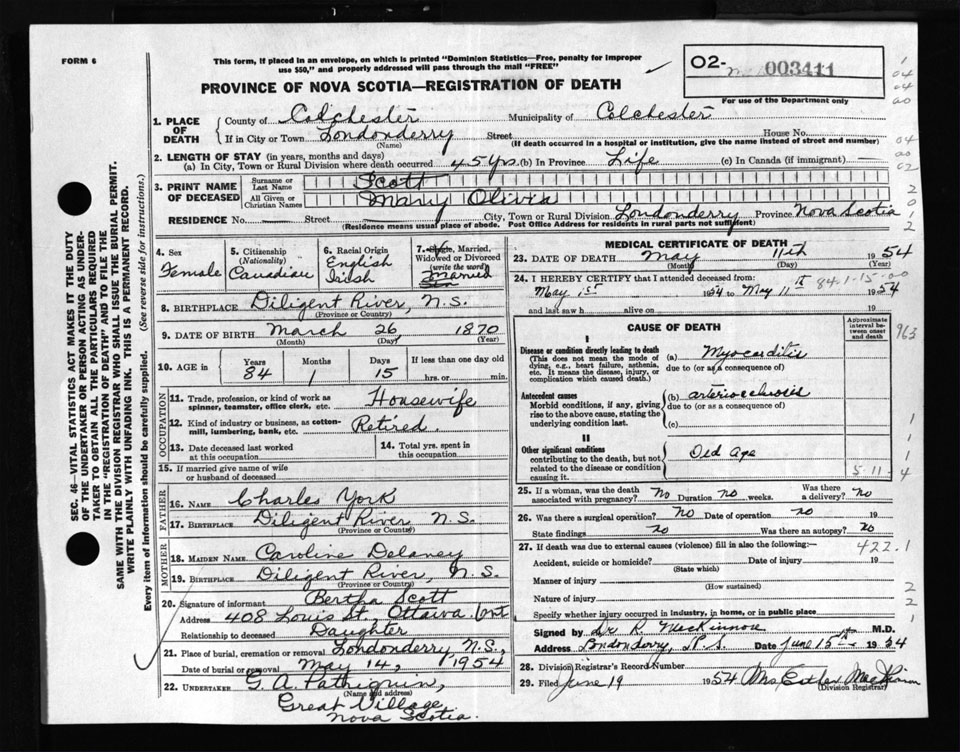 FORM 6
This form, if placed in an envelope, on which is printed "Dominion Statistics—Free, penalty for improper
use $50," and properly addressed will pass through the mail "FREE"
O2- 003411
For use of the Department only
PROVINCE OF NOVA SCOTIA—REGISTRATION OF DEATH
1. PLACE OF DEATH
County of Colchester Municipality of Colchester
If in City or Town Londonderry Street House No.
(Name) (If death occurred in a hospital or institution, give the name instead of street and number)
2. LENGTH OF STAY (in years, months and days)
(a) In City, Town or Rural Division where death occurred 45 yrs. (b) In Province Life (c) In Canada (if immigrant) —
3. PRINT NAME OF DECEASED
Surname or Last Name Scott
All Given or Christian Names Mary Olivia
RESIDENCE No. Street City, Town or Rural Division Londonderry Province Nova Scotia
(Residence means usual place of abode. Post Office Address for residents in rural parts not sufficient)
4. Sex
Female
5. Citizenship
(Nationality)
Canadian
6. Racial Origin
English
Irish
7. Single, Married,
Widowed or Divorced
(write the word)
Married
8. BIRTHPLACE Diligent River, N.S.
(Province or Country)
9. DATE OF BIRTH March 26 1870
(Month) (Day) (Year)
10. AGE in Years Months Days If less than one day old
84 1 15 hrs. or min.
OCCUPATION
11. Trade, profession, or kind of work as
spinner, teamster, office clerk, etc. Housewife
12. Kind of industry or business, as cotton-
mill, lumbering, bank, etc. Retired.
13. Date deceased last worked
at this occupation
14. Total yrs. spent in
this occupation
15. If married give name of wife
or husband of deceased
FATHER
16. NAME Charles York
17. BIRTHPLACE Diligent River, N.S.
(Province or Country)
MOTHER
18. MAIDEN NAME Caroline Delaney
19. BIRTHPLACE Diligent River, N.S.
(Province or Country)
20. Signature of informant Bertha Scott
Address 408 Louis St., Ottawa, Ont
Relationship to deceased Daughter
21. Place of burial, cremation or removal Londonderry N.S.,
Date of burial or removal May 14, 1954
22. UNDERTAKER G. A. Pathiquin,
(Name and address)
Great Village
Nova Scotia.
MEDICAL CERTIFICATE OF DEATH
23. DATE OF DEATH May 11th 1954
(Month) (Day) (Year)
24. I HEREBY CERTIFY that I attended deceased from:
May 1st 1954 to May 11th 1954
84-1-15-00
and last saw h alive on 19
CAUSE OF DEATH
Approximate interval between onset and death
963
I
Disease or condition directly leading to death
(This does not mean the mode of
dying, e.g., heart failure, asthenia,
etc. It means the disease, injury, or
complication which caused death.)
(a) Myocarditis
due to (or as a consequence of)
Antecedent causes
Morbid conditions, if any, giving
rise to the above cause, stating the
underlying condition last.
(b)
due to (or as a consequence of)
(c)
II
Other significant conditions
contributing to the death, but not
related to the disease or condition
causing it.
Old Age
5-11-4
25. If a woman, was the death
associated with pregnancy? No Duration no weeks. Was there
a delivery? no
26. Was there a surgical operation? No Date of operation no 19
State findings no Was there an autopsy? No
27. If death was due to external causes (violence) fill in also the following:—
422.1
Accident, suicide or homicide? Date of injury 19
(State which)
Manner of injury
(How sustained)
Nature of injury
Specify whether injury occurred in industry, in home, or in public place
Signed by Dr R. MacKinnon M.D.
Address Londonderry, N.S. Date June 15th 1954
28. Division Registrar's Record Number
29. Filed June 19 1954 Mrs Esther
(Division Registrar)
SEC. 46—VITAL STATISTICS ACT MAKES IT THE DUTY
OF THE UNDERTAKER OR PERSON ACTING AS UNDER-
TAKER TO OBTAIN ALL THE PARTICULARS REQUIRED
IN THE "REGISTRATION OF DEATH" AND TO FILE THE
SAME WITH THE DIVISION REGISTRAR WHO SHALL ISSUE THE BURIAL PERMIT.
WRITE PLAINLY WITH UNFADING INK. THIS IS A PERMANENT RECORD.
Every item of information should be carefully supplied. (See reverse side for instructions.)